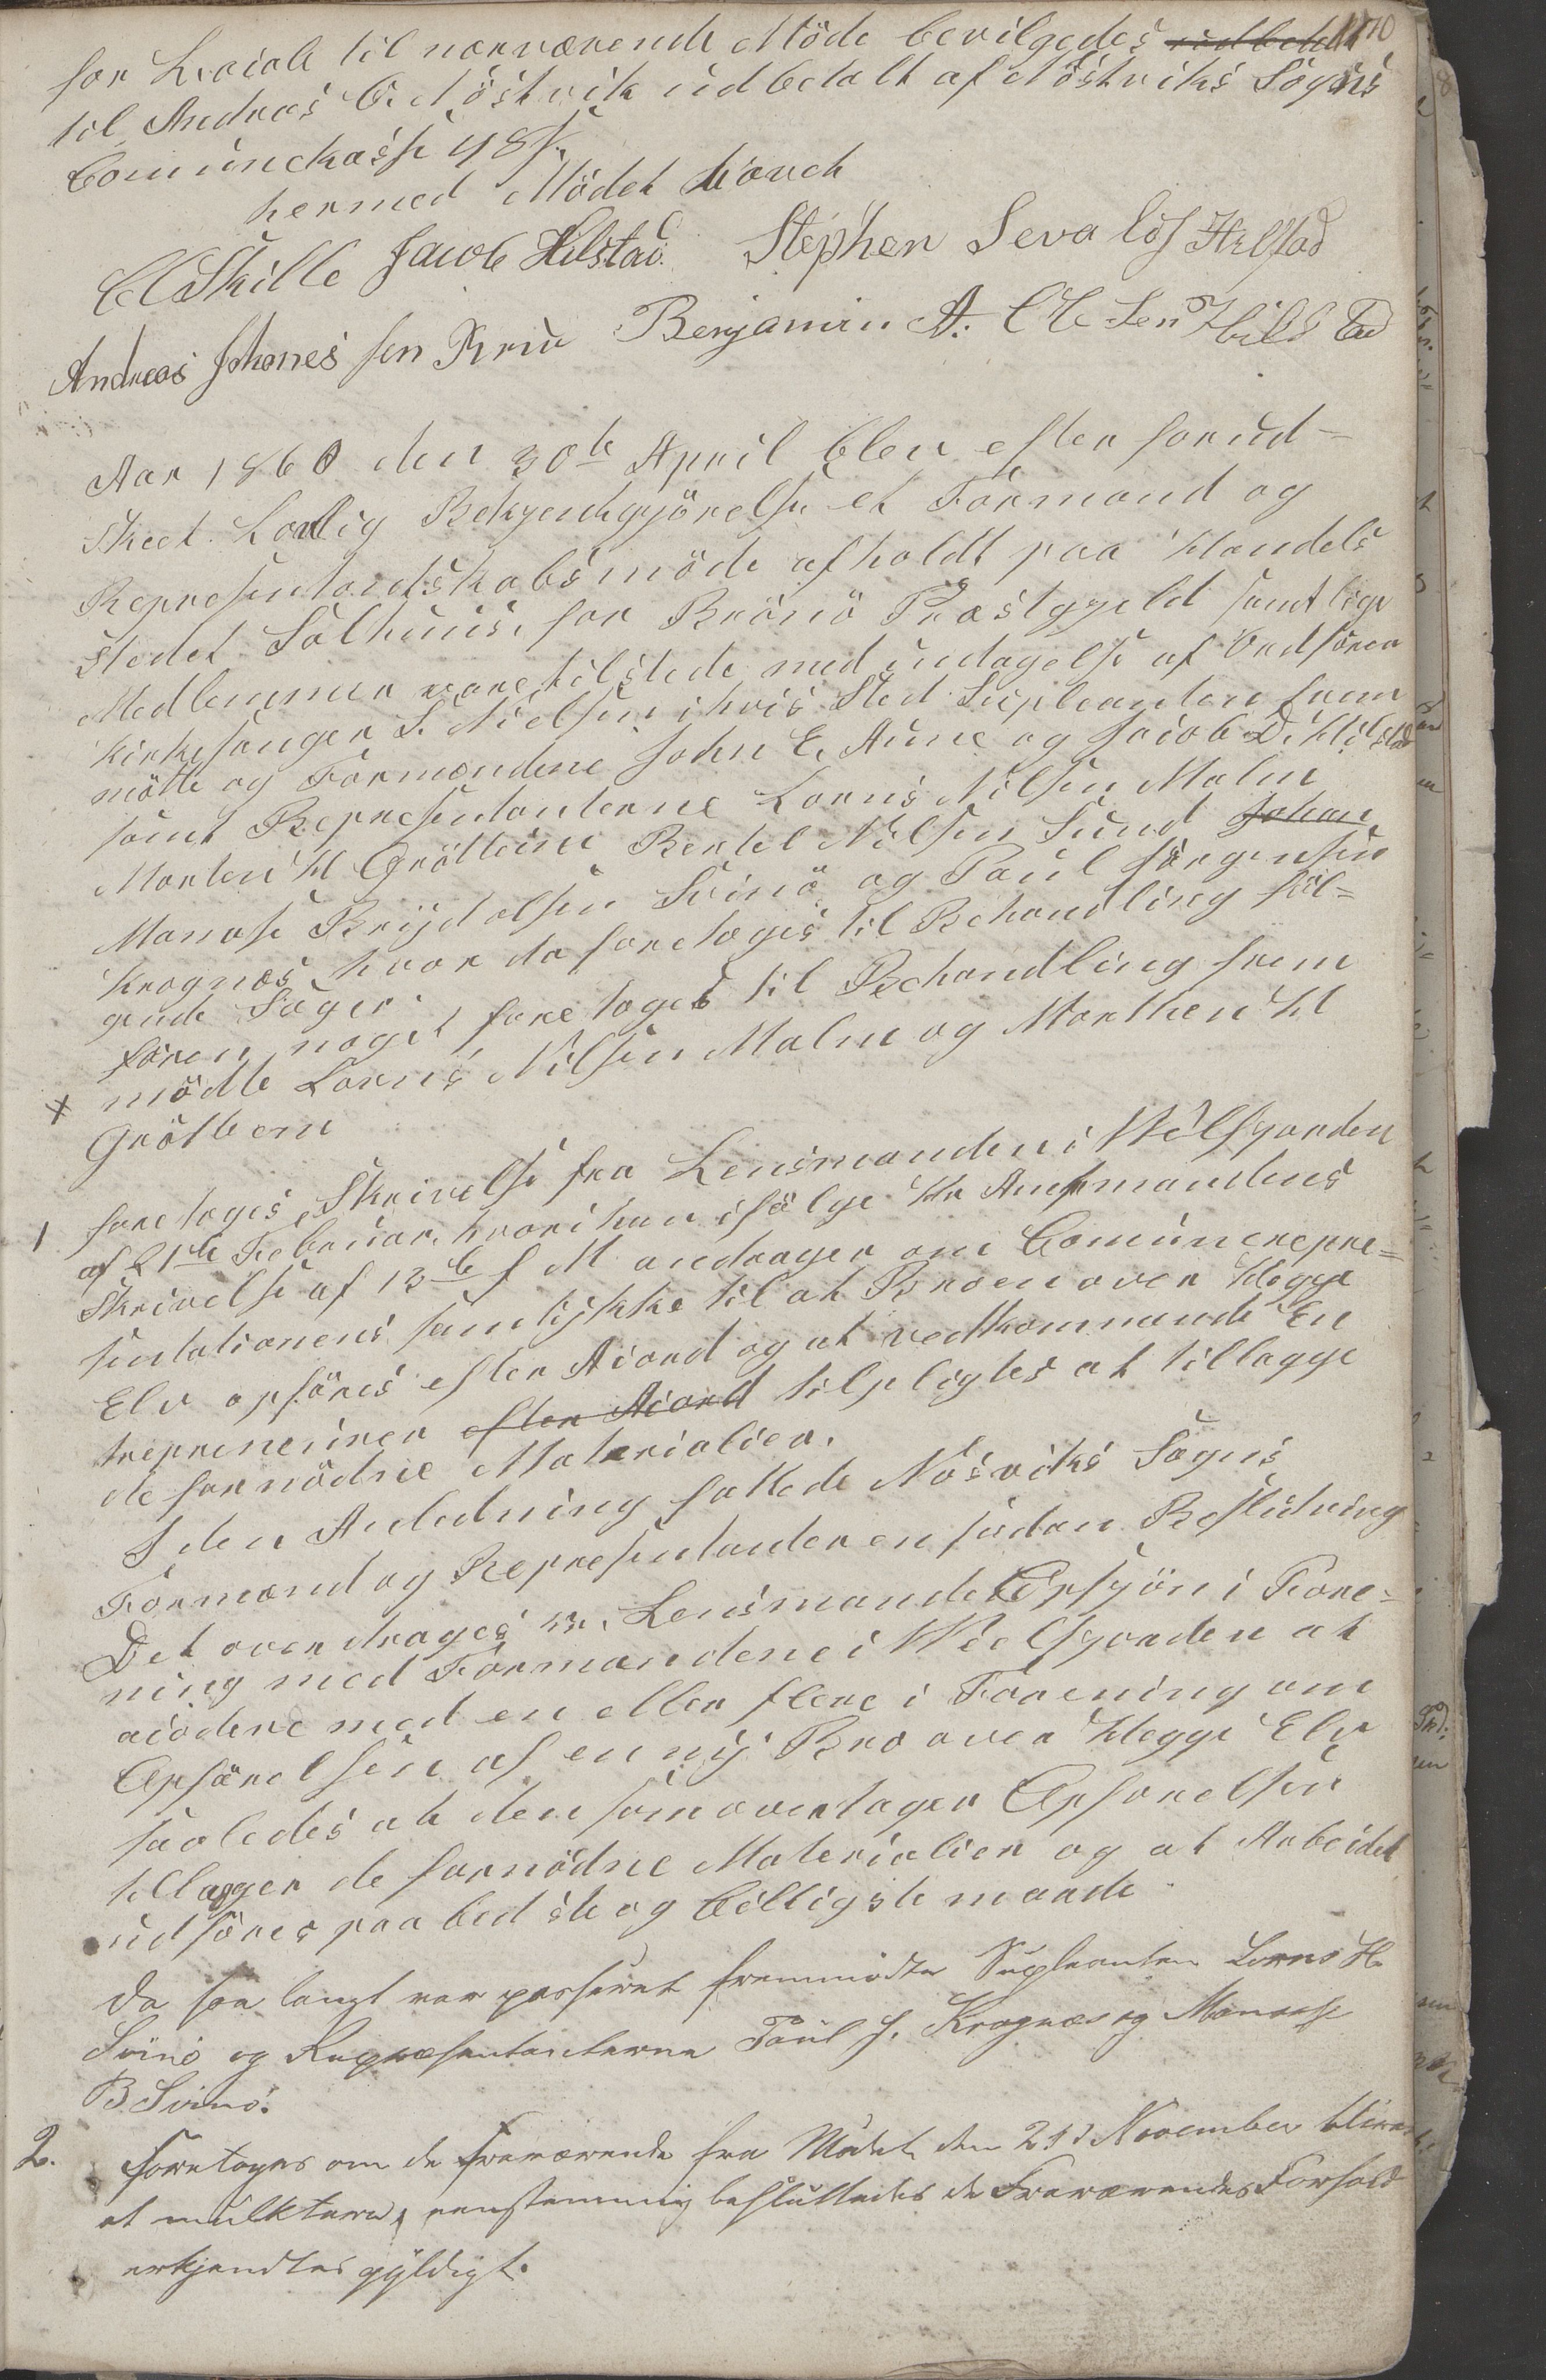 170
for Locale til nærværende Møde bevilgedes udbetalt
til Andreas C. Nöstvik udbetalt af Nöstviks Sogns
Comunekasse 48 s
hermed Mödet hævet
Jacob Hilstad. Stephen Sevaldsj Helstad
Andreas Johanes sen Benjamin A. Ole sen Hilstad
Aar 1860 den 30te April blev efter forud-
skeet Lovlig Bekjendtgjörelse et Formand og
Representandskabsmöde afholdt paa Handels
stedet Salhuus, for Brönö Præstegjeld samtlige
Medlemmer vare tilstede med undtagelse af Ordförer
Kirkesanger S. Nielsen i hvis Sted Supleanten frem
mötte og Formændene John E. Aune og Jacob D. Hilstad
samt Representanterne Lorns Nilsen Malm
Morten H Gröttheim Bertel Nilsen Sund Johan
Manase Brijdalsen Svinö og Paul Jörgensen
Kragnæs hvor da foretoges til Behandling föl-
gende Sager
x
fören noget foretoges til Behandling frem
mödte Lorns Nilsen Malm og Morthen H
Gröthem
1 foretoges Skrivelse fra Lensmanden i Velfjorden
af 21de Februar, hvori han ifölge Hr Amtmandens
Skrivelse af 13de f M andrager om Comunerepre-
sentationens samtykke til at Broen over Hegge
Elv opföres efter Acord og at vedkommende En
treprenerer efter Acord tilpligtes at tillægge
de fornödne Materialier.
I den Anledning fattede Nösviks Sogns
Formænd og Representanter en saadan Beslutning
Det overdrages Hr. Lensmand Opsjön i Fore-
ning med Formændene i Velfjorden at
acordere med en eller flere i Forening om
Opförelsen af en nÿ Bro over Hegge Elv
saaledes at den som overtager Opförelsen
tillægger de fornödne Materialier og at Arbeidet
udföres paa bedste og billigste maade.
Da saa langt var passeret fremmödte Supleanten Lorns H.
Svinö og Repræsentanterne Paul J. Kragnæs og Manasse
B Svinö.
2. Foretoges om de fraværende fra Mödet den 21d November bliver
at mulktere, eenstemmig besluttedes de Fraværendes Forfald
erkjendtes gyldigt.